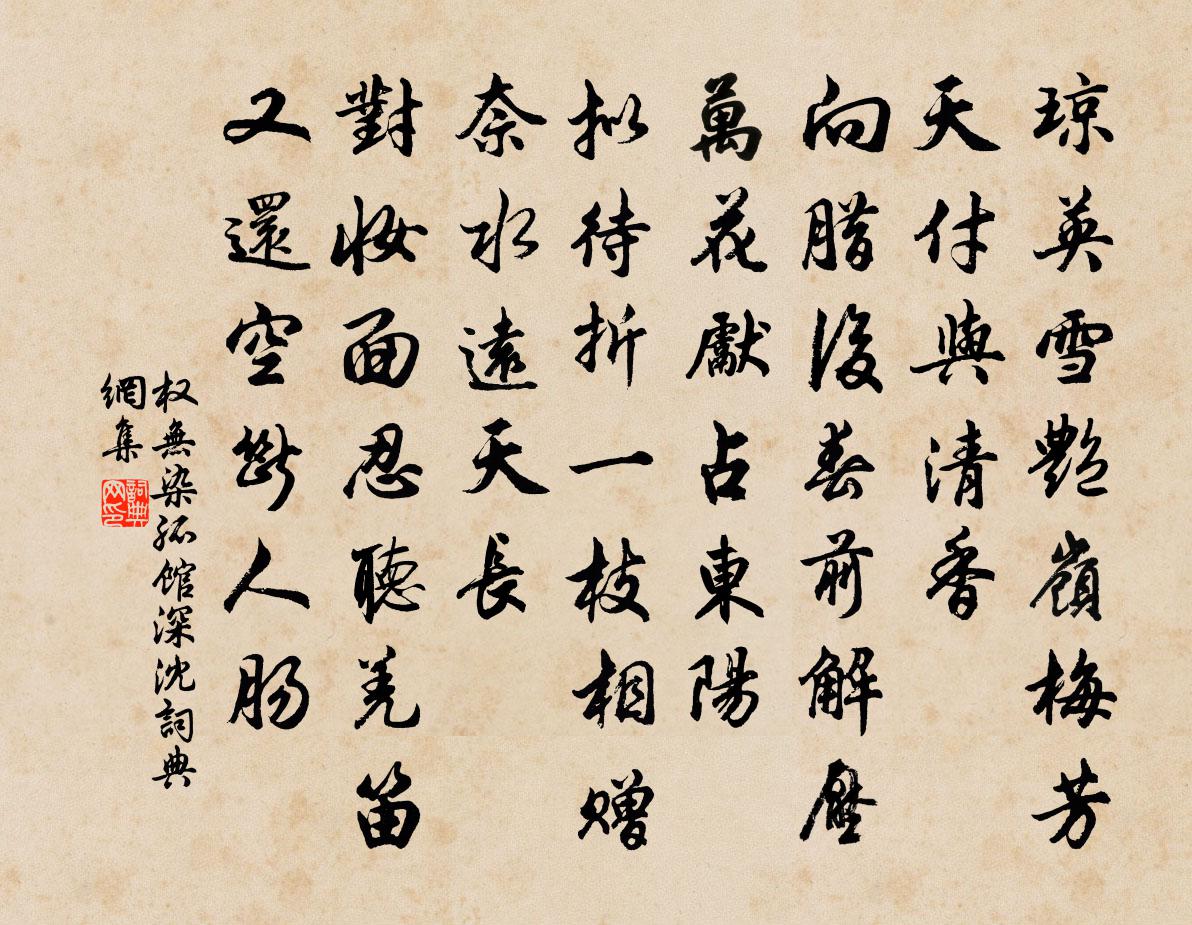 琼英雪艷嶺梅芳
天付與清香
向腊後春前解壓
萬花獻占東陽
拟待折一枝相赠
奈水遠天長
對妝面忍聽羌笛
又還空斷人肠
权無染孤館深沈詞典
網集
詞典網印